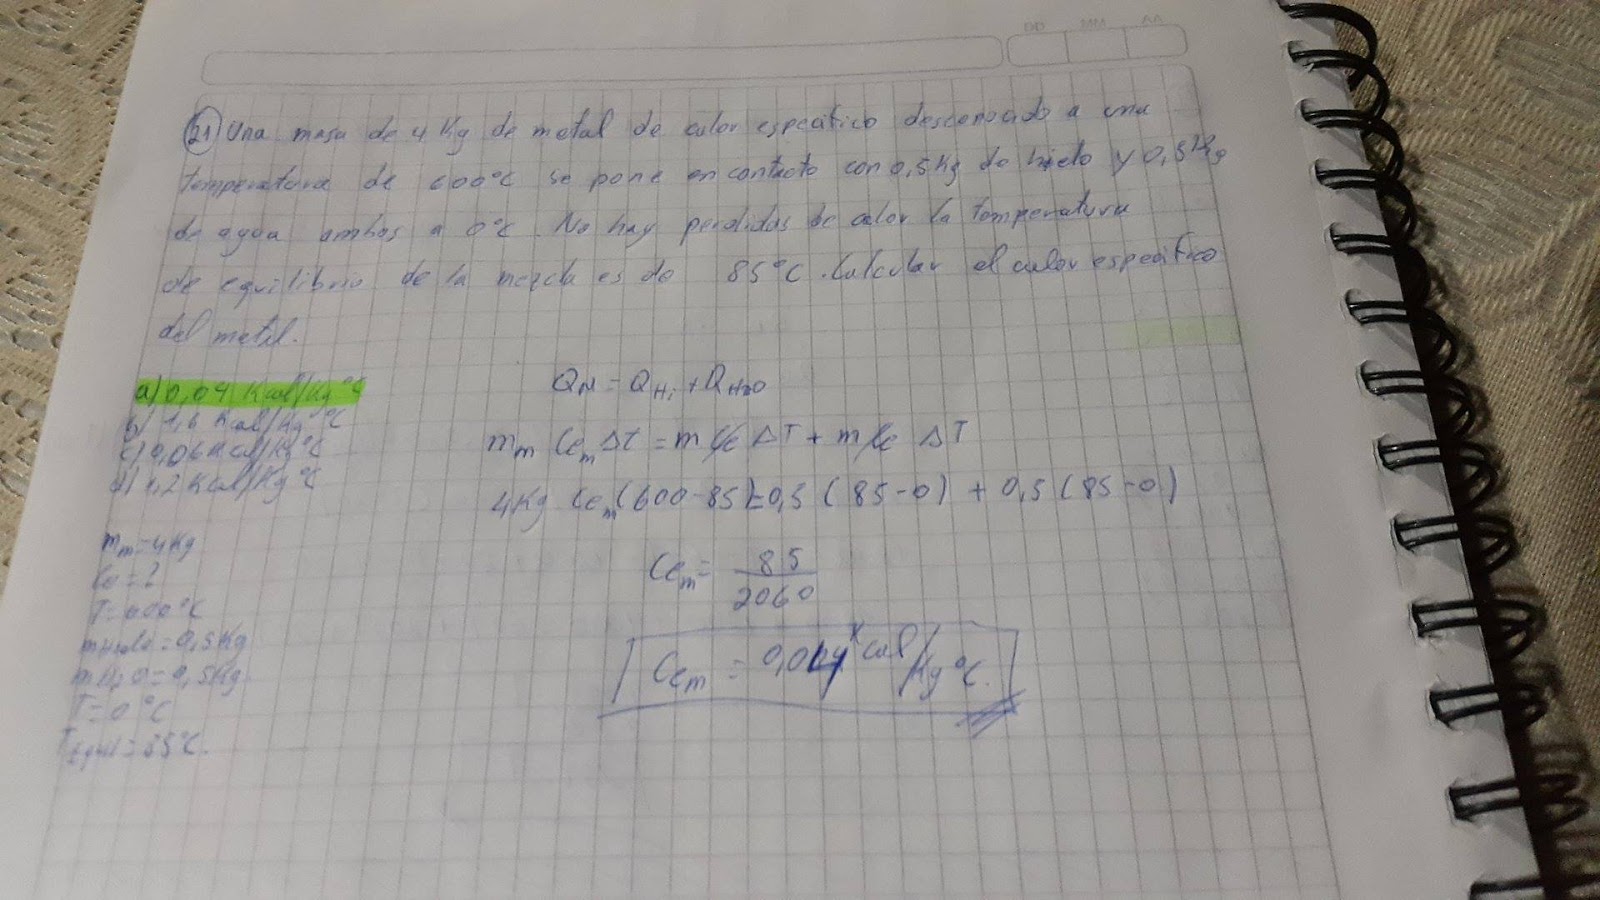 DD MM AA
21 Una masa de 4 Kg de metal de calor especifico desconocido a una
temperatura de 600°C se pone en contacto con 0,5Kg de hielo y 0,5Kg
de agua ambos a 0°C. No hay perdidas de calor la temperatura
de equilibrio de la mezcla es de 85°C. Calcular el calor especifico
del metal.
a) 0,04 Kcal/Kg°C
b) 1,6 Kcal/Kg°C
c) 0,06 Kcal/Kg°C
d) 1,2 Kcal/Kg°C
mm=4Kg
Ce=?
T=600°C
mHielo=0,5Kg
mH2O=0,5Kg
T=0°C
TEqui=85°C.
QM=QHi+QH2O
mm Cem Δt = m Ce ΔT + m Ce ΔT
4Kg Cem(600-85)=0,5 (85-0) + 0,5 (85-0)
Cem= 85
2060
Cem = 0,04 Kcal/Kg°C.